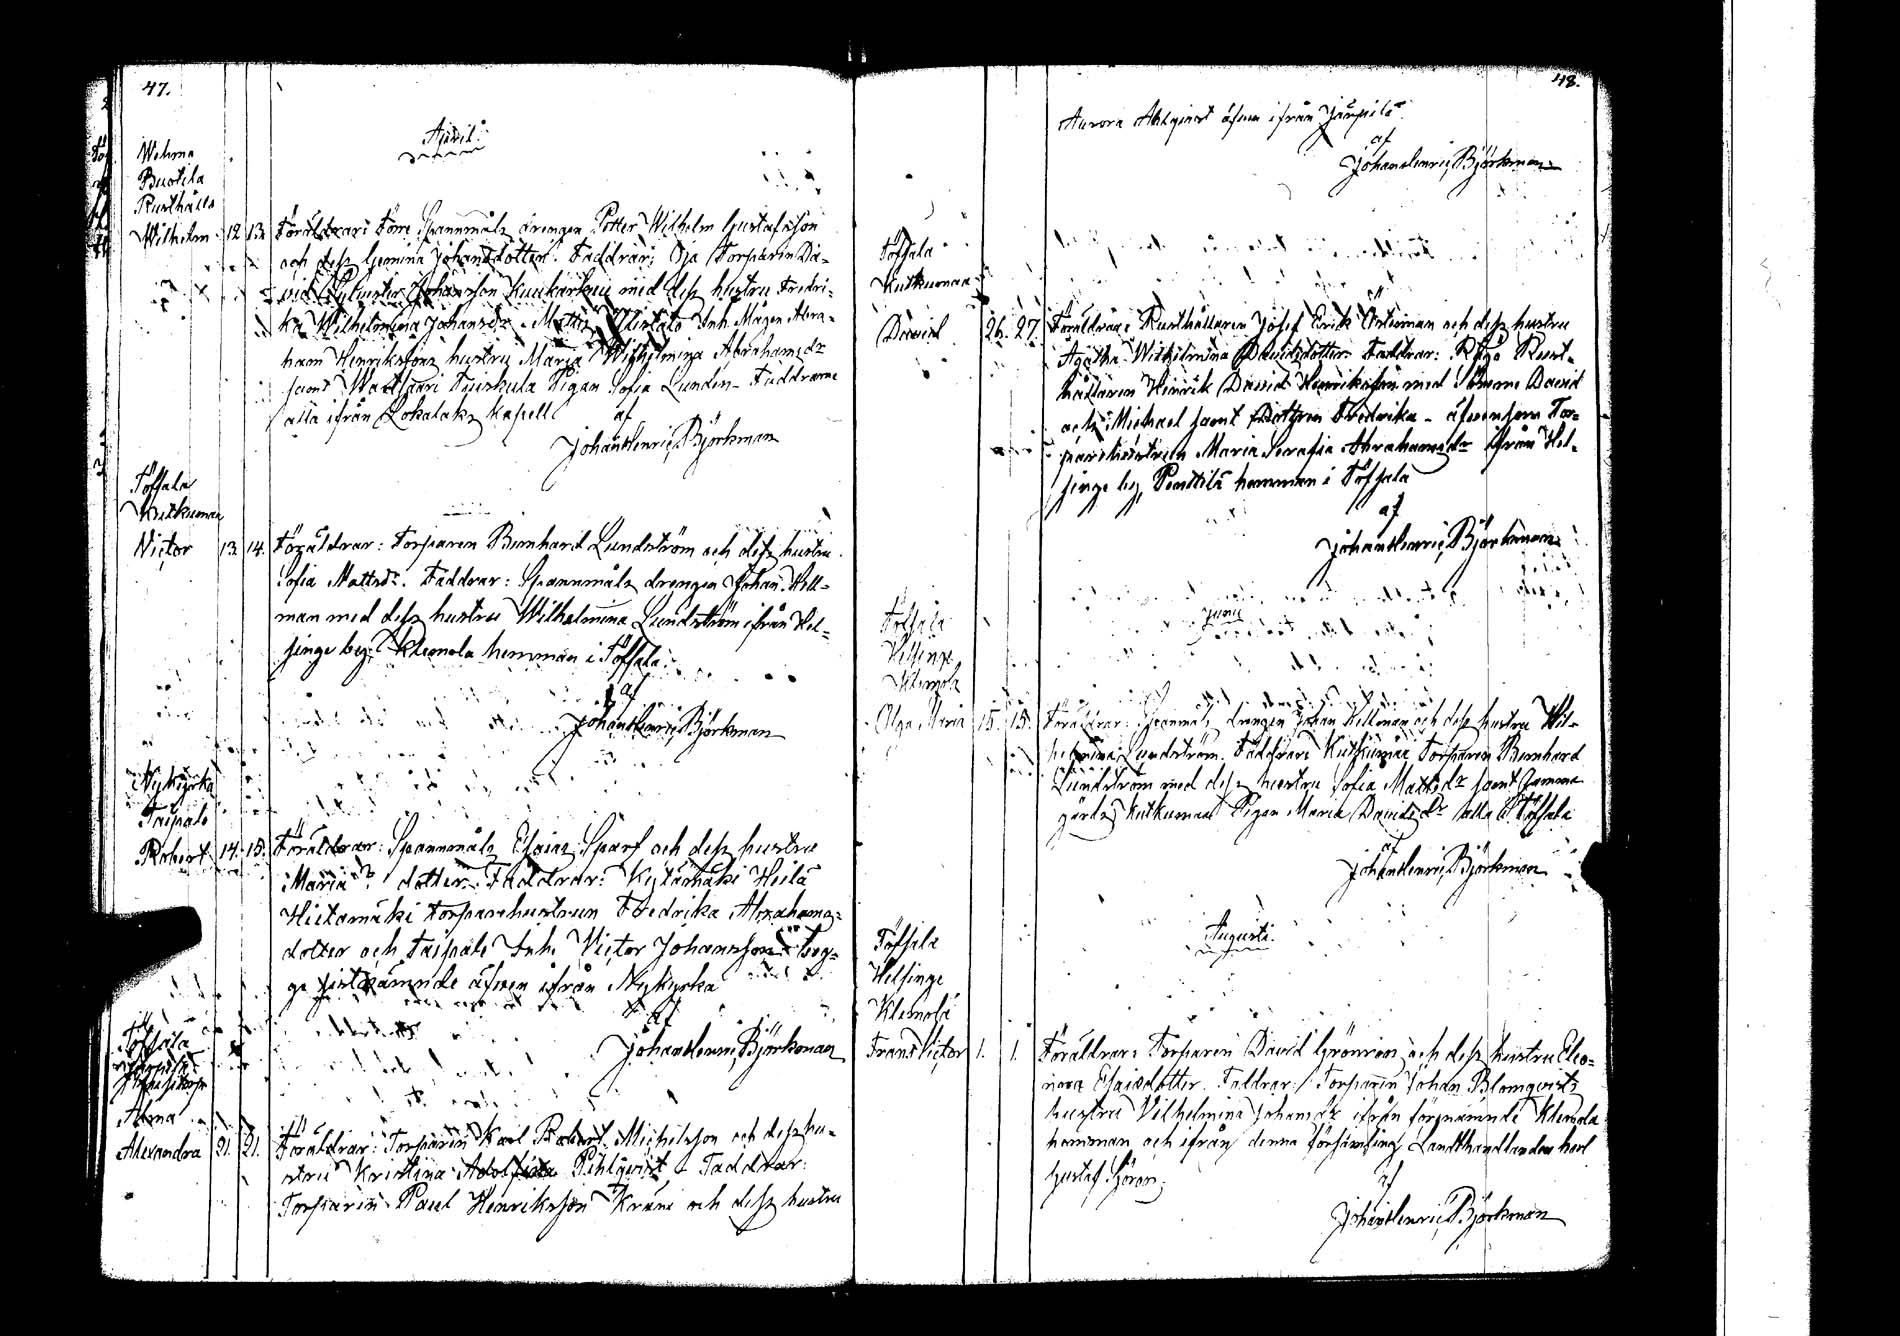 47.
April.
Wehma
Buotila
Rusthålls
Wilhelm 12 13 Föräldrar: Förre Spannmåls drengen Petter Wilhelm Gustafsson
och dess Gemina Johansdotter. Faddrar: Oja Torparen Da-
vid Sylvester Johansson Kuukarkuu med dess hustru Fredri-
ka Wilhelmina Johansdr. Inh. Mågen Abra-
ham Henrikssons hustru Maria Wilhelmina Abrahamsdr
samt Pigan Sofia Lundén - Faddrarne
alla ifrån Lokalaks kapell
af
Johan Henric Björkman
Töfsala
Kutkumaa
Victor 13. 14. Föräldrar: Torparen Bernhard Lundström och dess hustru
Sofia Mattsdr. Faddrar: Spannmåls drengen Johan Hell-
man med dess hustru Wilhelmina Lundström ifrån Hel-
singe by Klemola hemman i Töfsala.
af
Johan Henric Björkman
Nykyrka
Taipale
Robert 14. 15. Föräldrar: Spannmåls Esaias Sparf och dess hustru
Maria ? dotter. Faddrar: Kytämäki Heilä
Hietamäki Torparehustrun Fredrika Abrahams-
dotter och Taipale Inh. Victor Johansson - beg-
ge sistnämnde äfven ifrån Nykyrka
af
Johan Henric Björkman
Töfsala
Alma
Alexandra 21. 21. Föräldrar: Torparen Karl Robert Michelsson och dess hu-
stru Kristina Adolfina Pihlqvist - Faddrar:
Torparen Paul Henriksson Kräni och dess hustru
48.
Aurora Ahlqvist äfven ifrån Jäupilä
af
Johan Henric Björkman
Töfsala
Kutkumaa
David 26. 27. Föräldrar: Rusthållaren Josef Erik Österman och dess hustru
Agatha Wilhelmina Davidsdotter. Faddrar: Rust-
hållaren Henrik David Henriksson med Sönerne David
och Michael samt Dottren Fredrika - äfvensom Tor-
parehustrun Maria Serafia Abrahamsdr ifrån Hel-
singe by, Penttilä hemman i Töfsala
af
Johan Henric Björkman
Junii
Töfsala
Helsinge
Klemola
Olga Maria 15. 15. Föräldrar: Spannmåls drengen Johan Hellman och dess hustru Wil-
helmina Lundström. Faddrar: Kutkumaa Torparen Bernhard
Lundström med dess hustru Sofia Mattsdr samt Gamma
gårds Kutkumaa Pigan Maria Davidsdr alla i Töfsala
af
Johan Henric Björkman
Augusti.
Töfsala
Helsinge
Klemola
Frans Victor 1. 1. Föräldrar: Torparen David Grönroos och dess hustru Eleo-
nora Esaisdotter. Faddrar: Torparen Johan Blomqvists
hustru Vilhelmina Johansdr ifrån förenämnde Klemola
hemman och ifrån denna församling Landthandlanden
Gustaf Sjöroos
af
Johan Henric Björkman